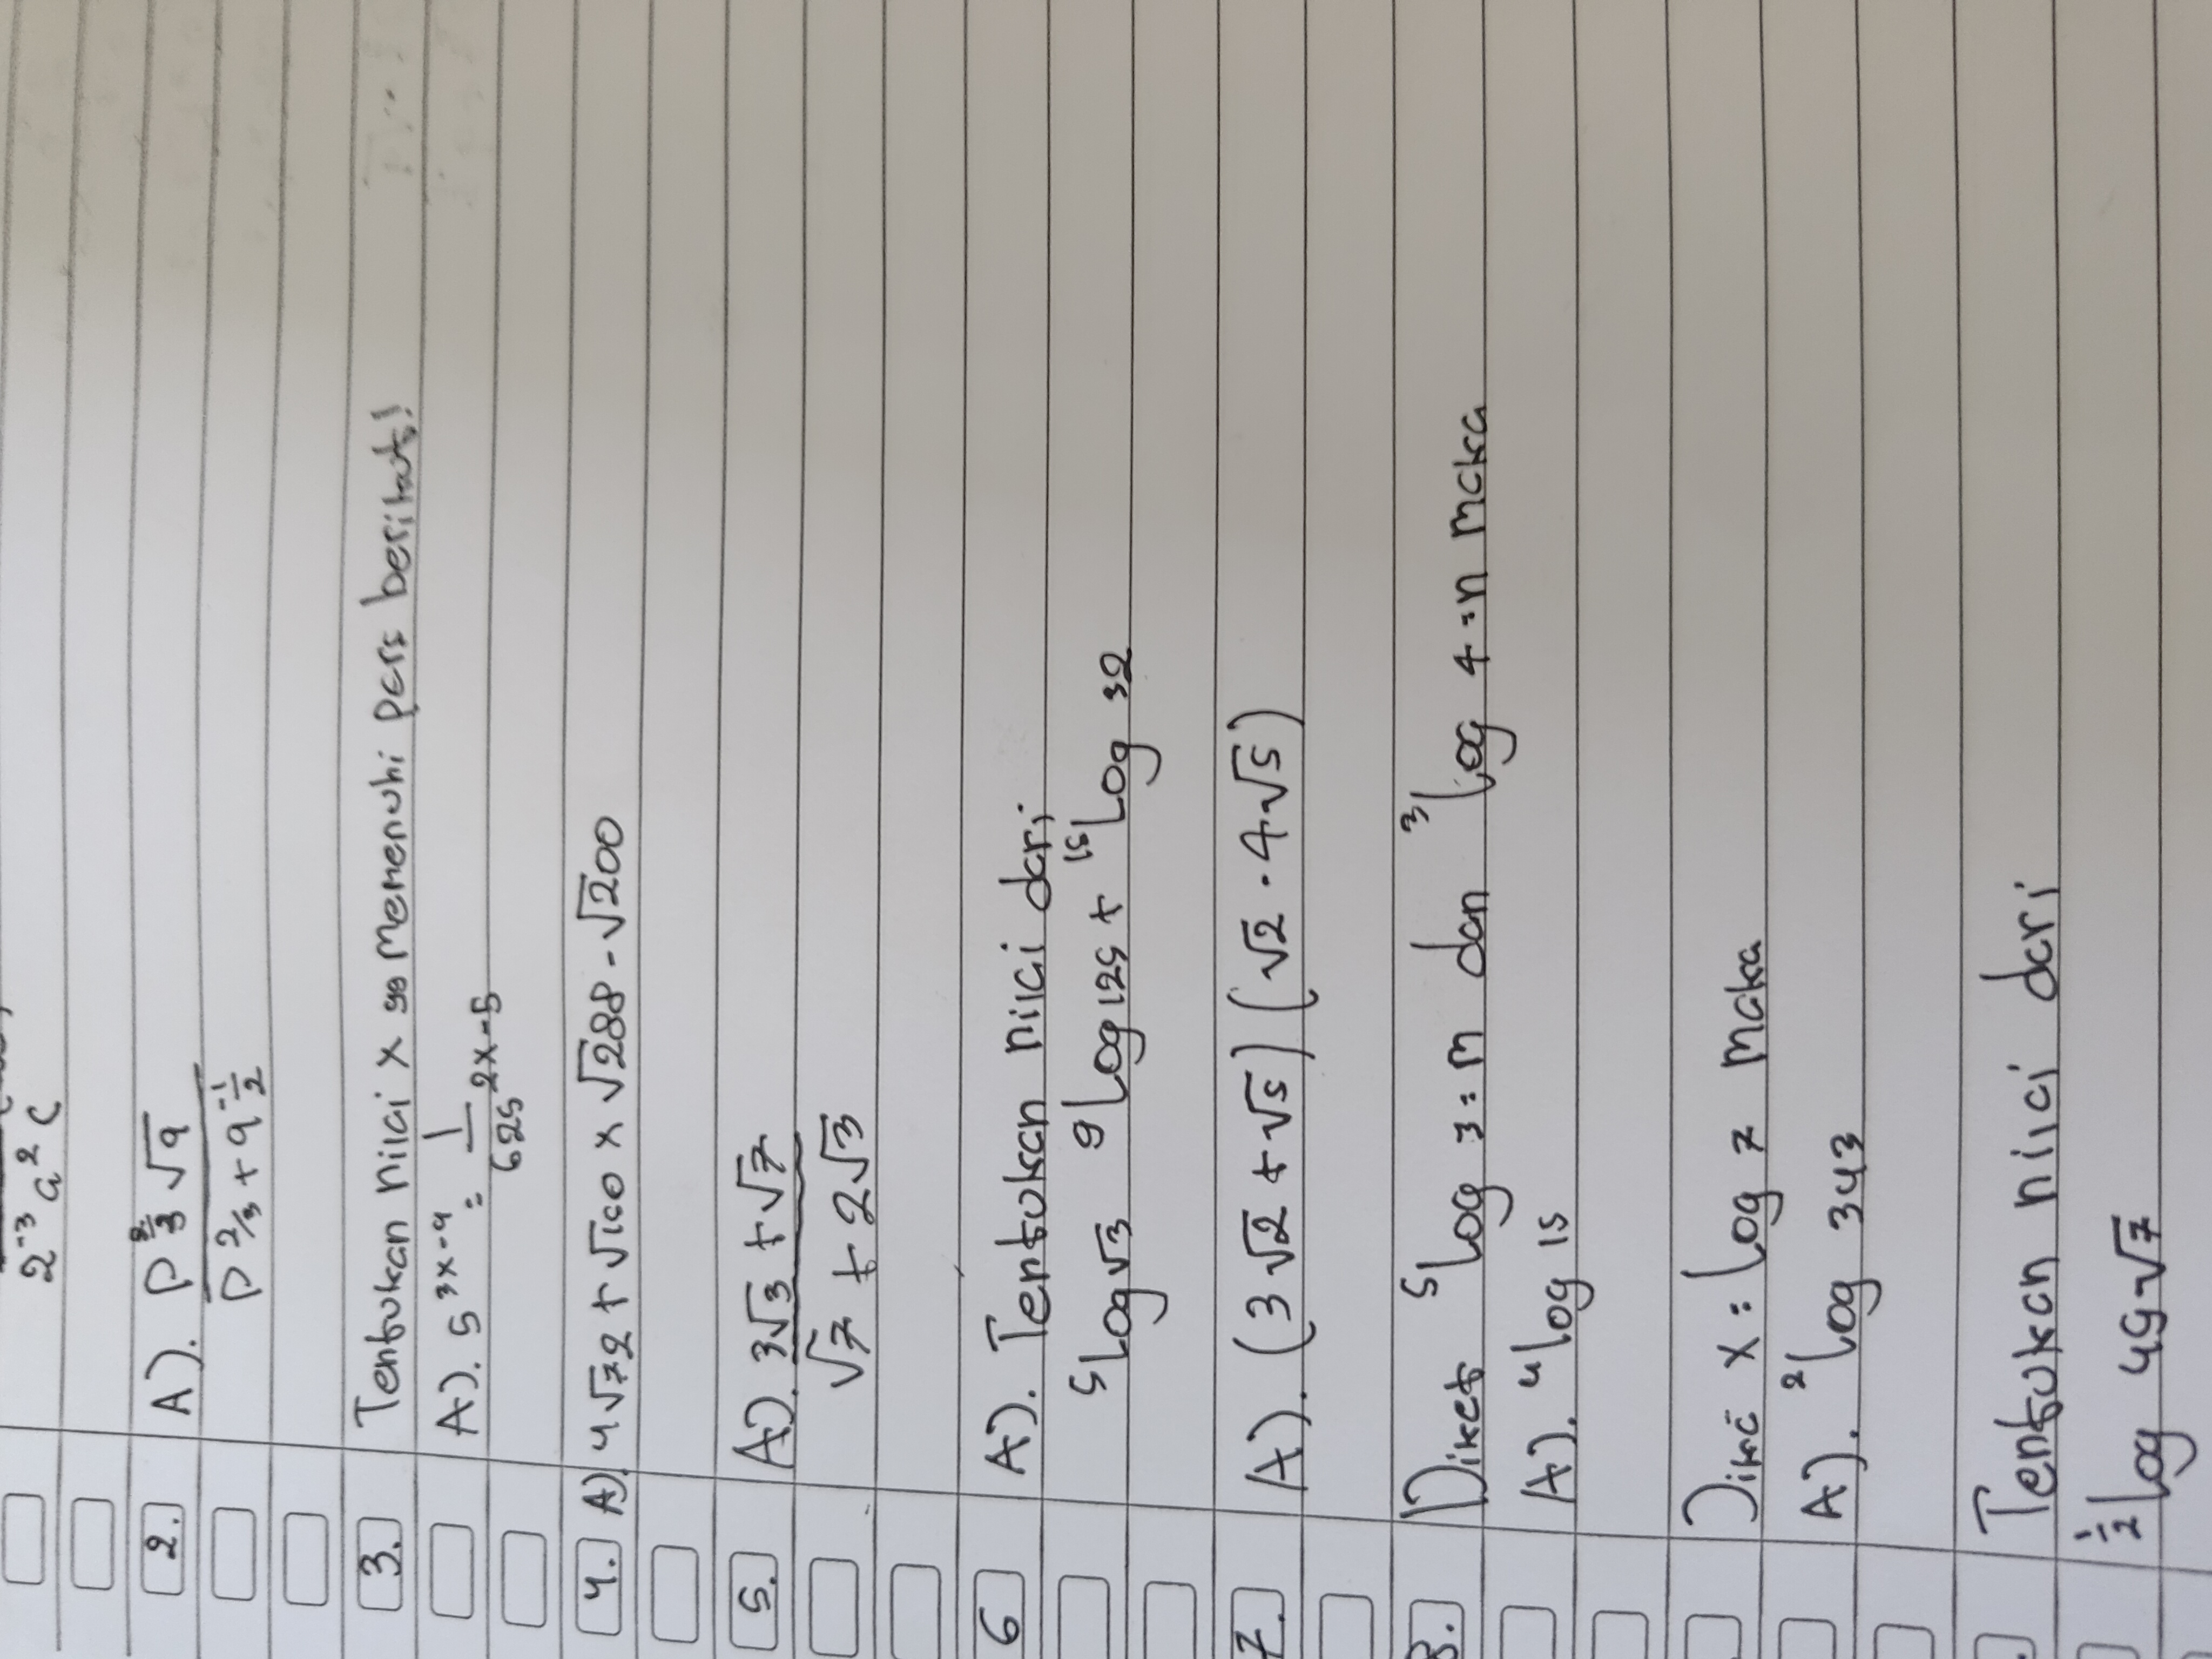 2⁻³ a² c
2. A). P^(2/3) √9
P^(2/3) + 9^(-1/2)
3. Tentukan nilai x yg memenuhi pers berikut!
A). 5^(3x-9) = 1
625^(2x-5)
4. A) 4√72 + √160 × √288 - √200
5. A). 3√3 + √7
√7 + 2√3
6 A). Tentukan nilai dari
⁵Log √3 ⁹Log 125 + ¹⁵Log 32
7. A). (3√2 + √5) (√2 - 4√5)
8. Diket ⁵log 3 = m dan ³log 4 = n maka
A). ⁴log 15
Dike x = log 7 maka
A). ²log 343
Tentukan nilai dari
^(1/2)log 49√7